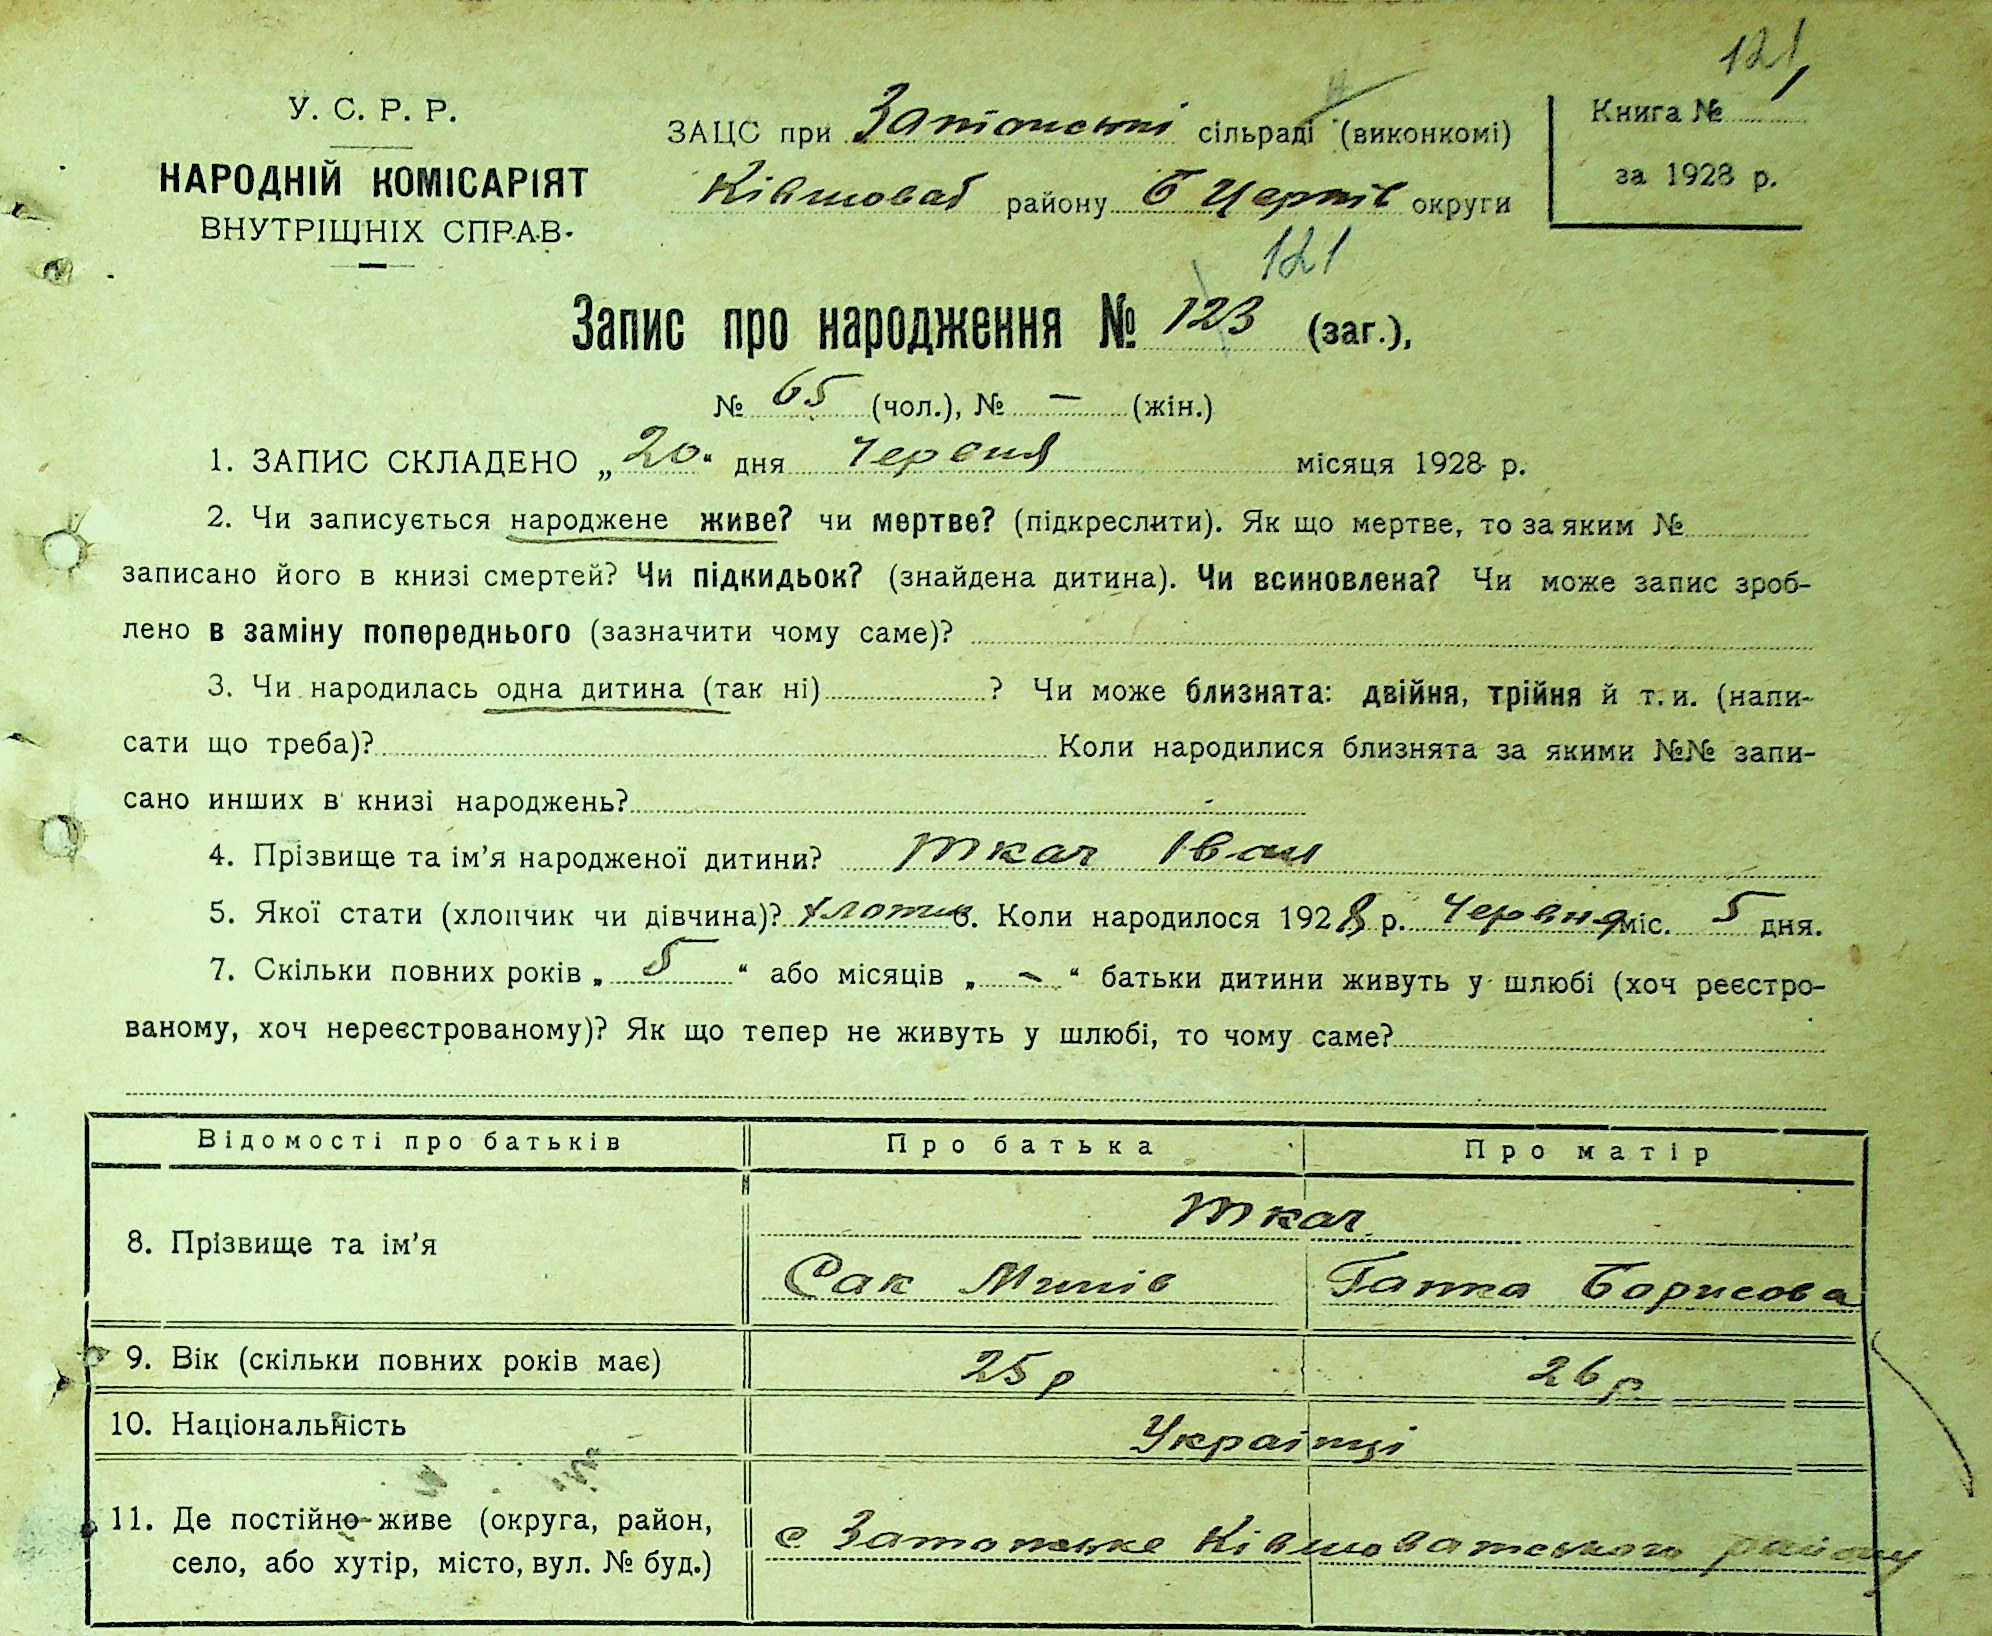 121
У. С. Р. Р.
НАРОДНІЙ КОМІСАРІЯТ
ВНУТРІШНІХ СПРАВ.
ЗАЦС при Затонські сільраді (виконкомі)
Ківшоват району Б Церків округи
Книга №
за 1928 р.
121
Запис про народження № 123 (заг.),
№ 65 (чол.), № — (жін.)
1. ЗАПИС СКЛАДЕНО „20“ дня Червня місяця 1928 р.
2. Чи записується народжене живе? чи мертве? (підкреслити). Як що мертве, то за яким №
записано його в книзі смертей? Чи підкидьок? (знайдена дитина). Чи всиновлена? Чи може запис зроб-
лено в заміну попереднього (зазначити чому саме)?
3. Чи народилась одна дитина (так ні) ? Чи може близнята: двійня, трійня й т. и. (напи-
сати що треба)? Коли народилися близнята за якими №№ запи-
сано инших в книзі народжень?
4. Прізвище та ім’я народженої дитини? Ткач Іван
5. Якої стати (хлопчик чи дівчина)? хлопчик 6. Коли народилося 1928 р. Червня міс. 5 дня.
7. Скільки повних років „ 5 “ або місяців „ — “ батьки дитини живуть у шлюбі (хоч реєстро-
ваному, хоч нереєстрованому)? Як що тепер не живуть у шлюбі, то чому саме?
Відомості про батьків Про батька Про матір
8. Прізвище та ім’я Ткач
Сак Минів Гапка Борисова
9. Вік (скільки повних років має) 25 р 26 р.
10. Національність Українці
11. Де постійно живе (округа, район,
село, або хутір, місто, вул. № буд.) с Затонське Ківшоватського району